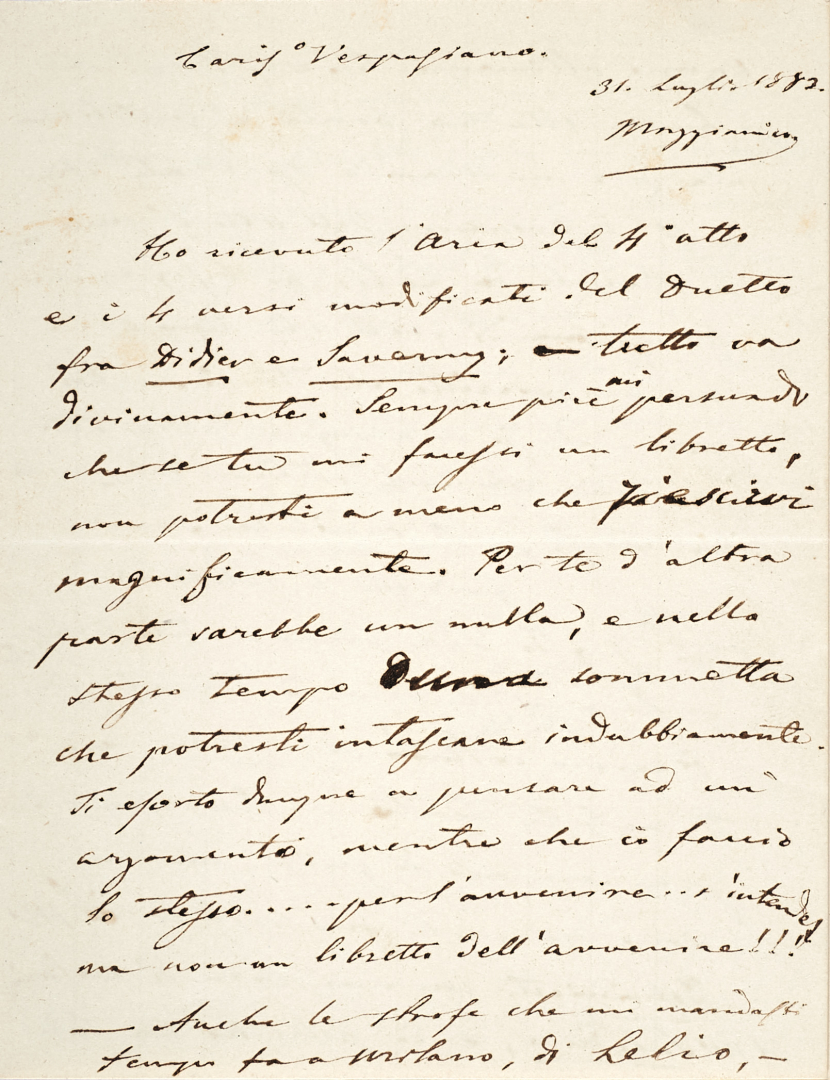 Cariss.º Vespasiano.
31. Luglio 1882.
Maggianico
Ho ricevuto l'Aria del 4º atto
e i 4 versi modificati del Duetto
fra Didier e Saverny; tutto va
divinamente. Sempre più mi persuado
che se tu mi facessi un libretto,
non potresti a meno che riescirvi
magnificamente. Per te d'altra
parte sarebbe un nulla, e nello
stesso tempo una sommetta
che potresti intascare indubbiamente.
Ti esorto dunque a pensare ad un
argomento, mentre che io faccio
lo stesso..... per l'avvenire.. s'intende,
ma non un libretto dell'avvenire!!!
— Anche le strofe che mi mandasti
tempo fa a Milano, di Lelio, —